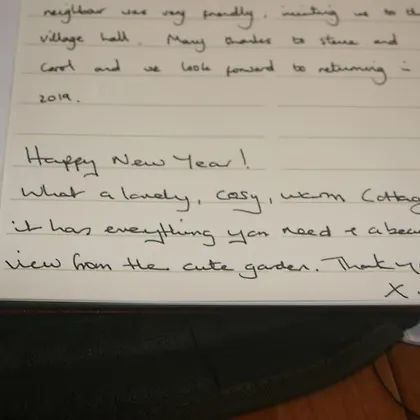 neighbour was very friendly, inviting us to th
village hall. Many thanks to Steve and
Carol and we look forward to returning i
2019.
Happy New Year!
What a lovely, cosy, warm Cottag
it has everything you need & a beau
view from the cute garden. Thank y
X.